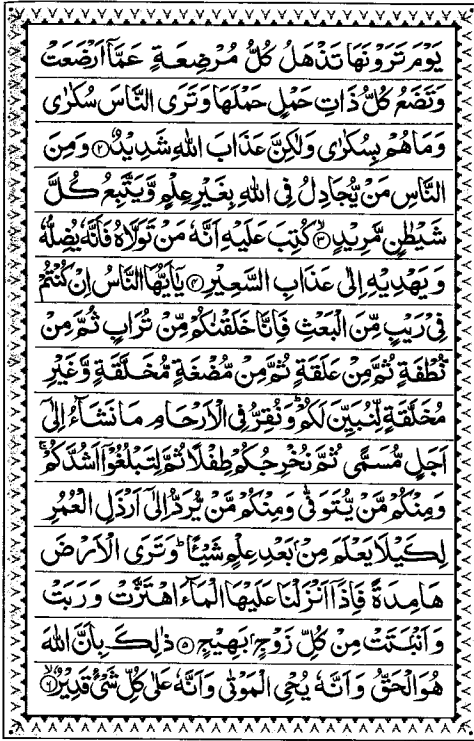 يَوْمَ تَرَوْنَهَا تَذْهَلُ كُلُّ مُرْضِعَةٍ عَمَّاۤ اَرْضَعَتْ
وَتَضَعُ كُلُّ ذَاتِ حَمْلٍ حَمْلَهَا وَتَرَى النَّاسَ سُكٰرٰى
وَمَا هُمْ بِسُكٰرٰى وَلٰكِنَّ عَذَابَ اللهِ شَدِيْدٌ ﴿۲﴾ وَمِنَ
النَّاسِ مَنْ يُّجَادِلُ فِى اللهِ بِغَيْرِ عِلْمٍ وَّيَتَّبِعُ كُلَّ
شَيْطٰنٍ مَّرِيْدٍ ﴿۳﴾ۙ كُتِبَ عَلَيْهِ اَنَّهٗ مَنْ تَوَلَّاهُ فَاَنَّهٗ يُضِلُّهٗ
وَيَهْدِيْهِ اِلٰى عَذَابِ السَّعِيْرِ ﴿۴﴾ يٰۤاَيُّهَا النَّاسُ اِنْ كُنْتُمْ
فِىْ رَيْبٍ مِّنَ الْبَعْثِ فَاِنَّا خَلَقْنٰكُمْ مِّنْ تُرَابٍ ثُمَّ مِنْ
نُّطْفَةٍ ثُمَّ مِنْ عَلَقَةٍ ثُمَّ مِنْ مُّضْغَةٍ مُّخَلَّقَةٍ وَّغَيْرِ
مُخَلَّقَةٍ لِّنُبَيِّنَ لَكُمْ ؕ وَنُقِرُّ فِى الْاَرْحَامِ مَا نَشَآءُ اِلٰۤى
اَجَلٍ مُّسَمًّى ثُمَّ نُخْرِجُكُمْ طِفْلًا ثُمَّ لِتَبْلُغُوْۤا اَشُدَّكُمْ ۚ
وَمِنْكُمْ مَّنْ يُّتَوَفّٰى وَمِنْكُمْ مَّنْ يُّرَدُّ اِلٰۤى اَرْذَلِ الْعُمُرِ
لِكَيْلَا يَعْلَمَ مِنْۢ بَعْدِ عِلْمٍ شَيْـًٔا ؕ وَتَرَى الْاَرْضَ
هَامِدَةً فَاِذَاۤ اَنْزَلْنَا عَلَيْهَا الْمَآءَ اهْتَزَّتْ وَرَبَتْ
وَاَنْۢبَتَتْ مِنْ كُلِّ زَوْجٍۭ بَهِيْجٍ ﴿۵﴾ ذٰلِكَ بِاَنَّ اللهَ
هُوَ الْحَقُّ وَاَنَّهٗ يُحْىِ الْمَوْتٰى وَاَنَّهٗ عَلٰى كُلِّ شَىْءٍ قَدِيْرٌ ﴿۶﴾ۙ